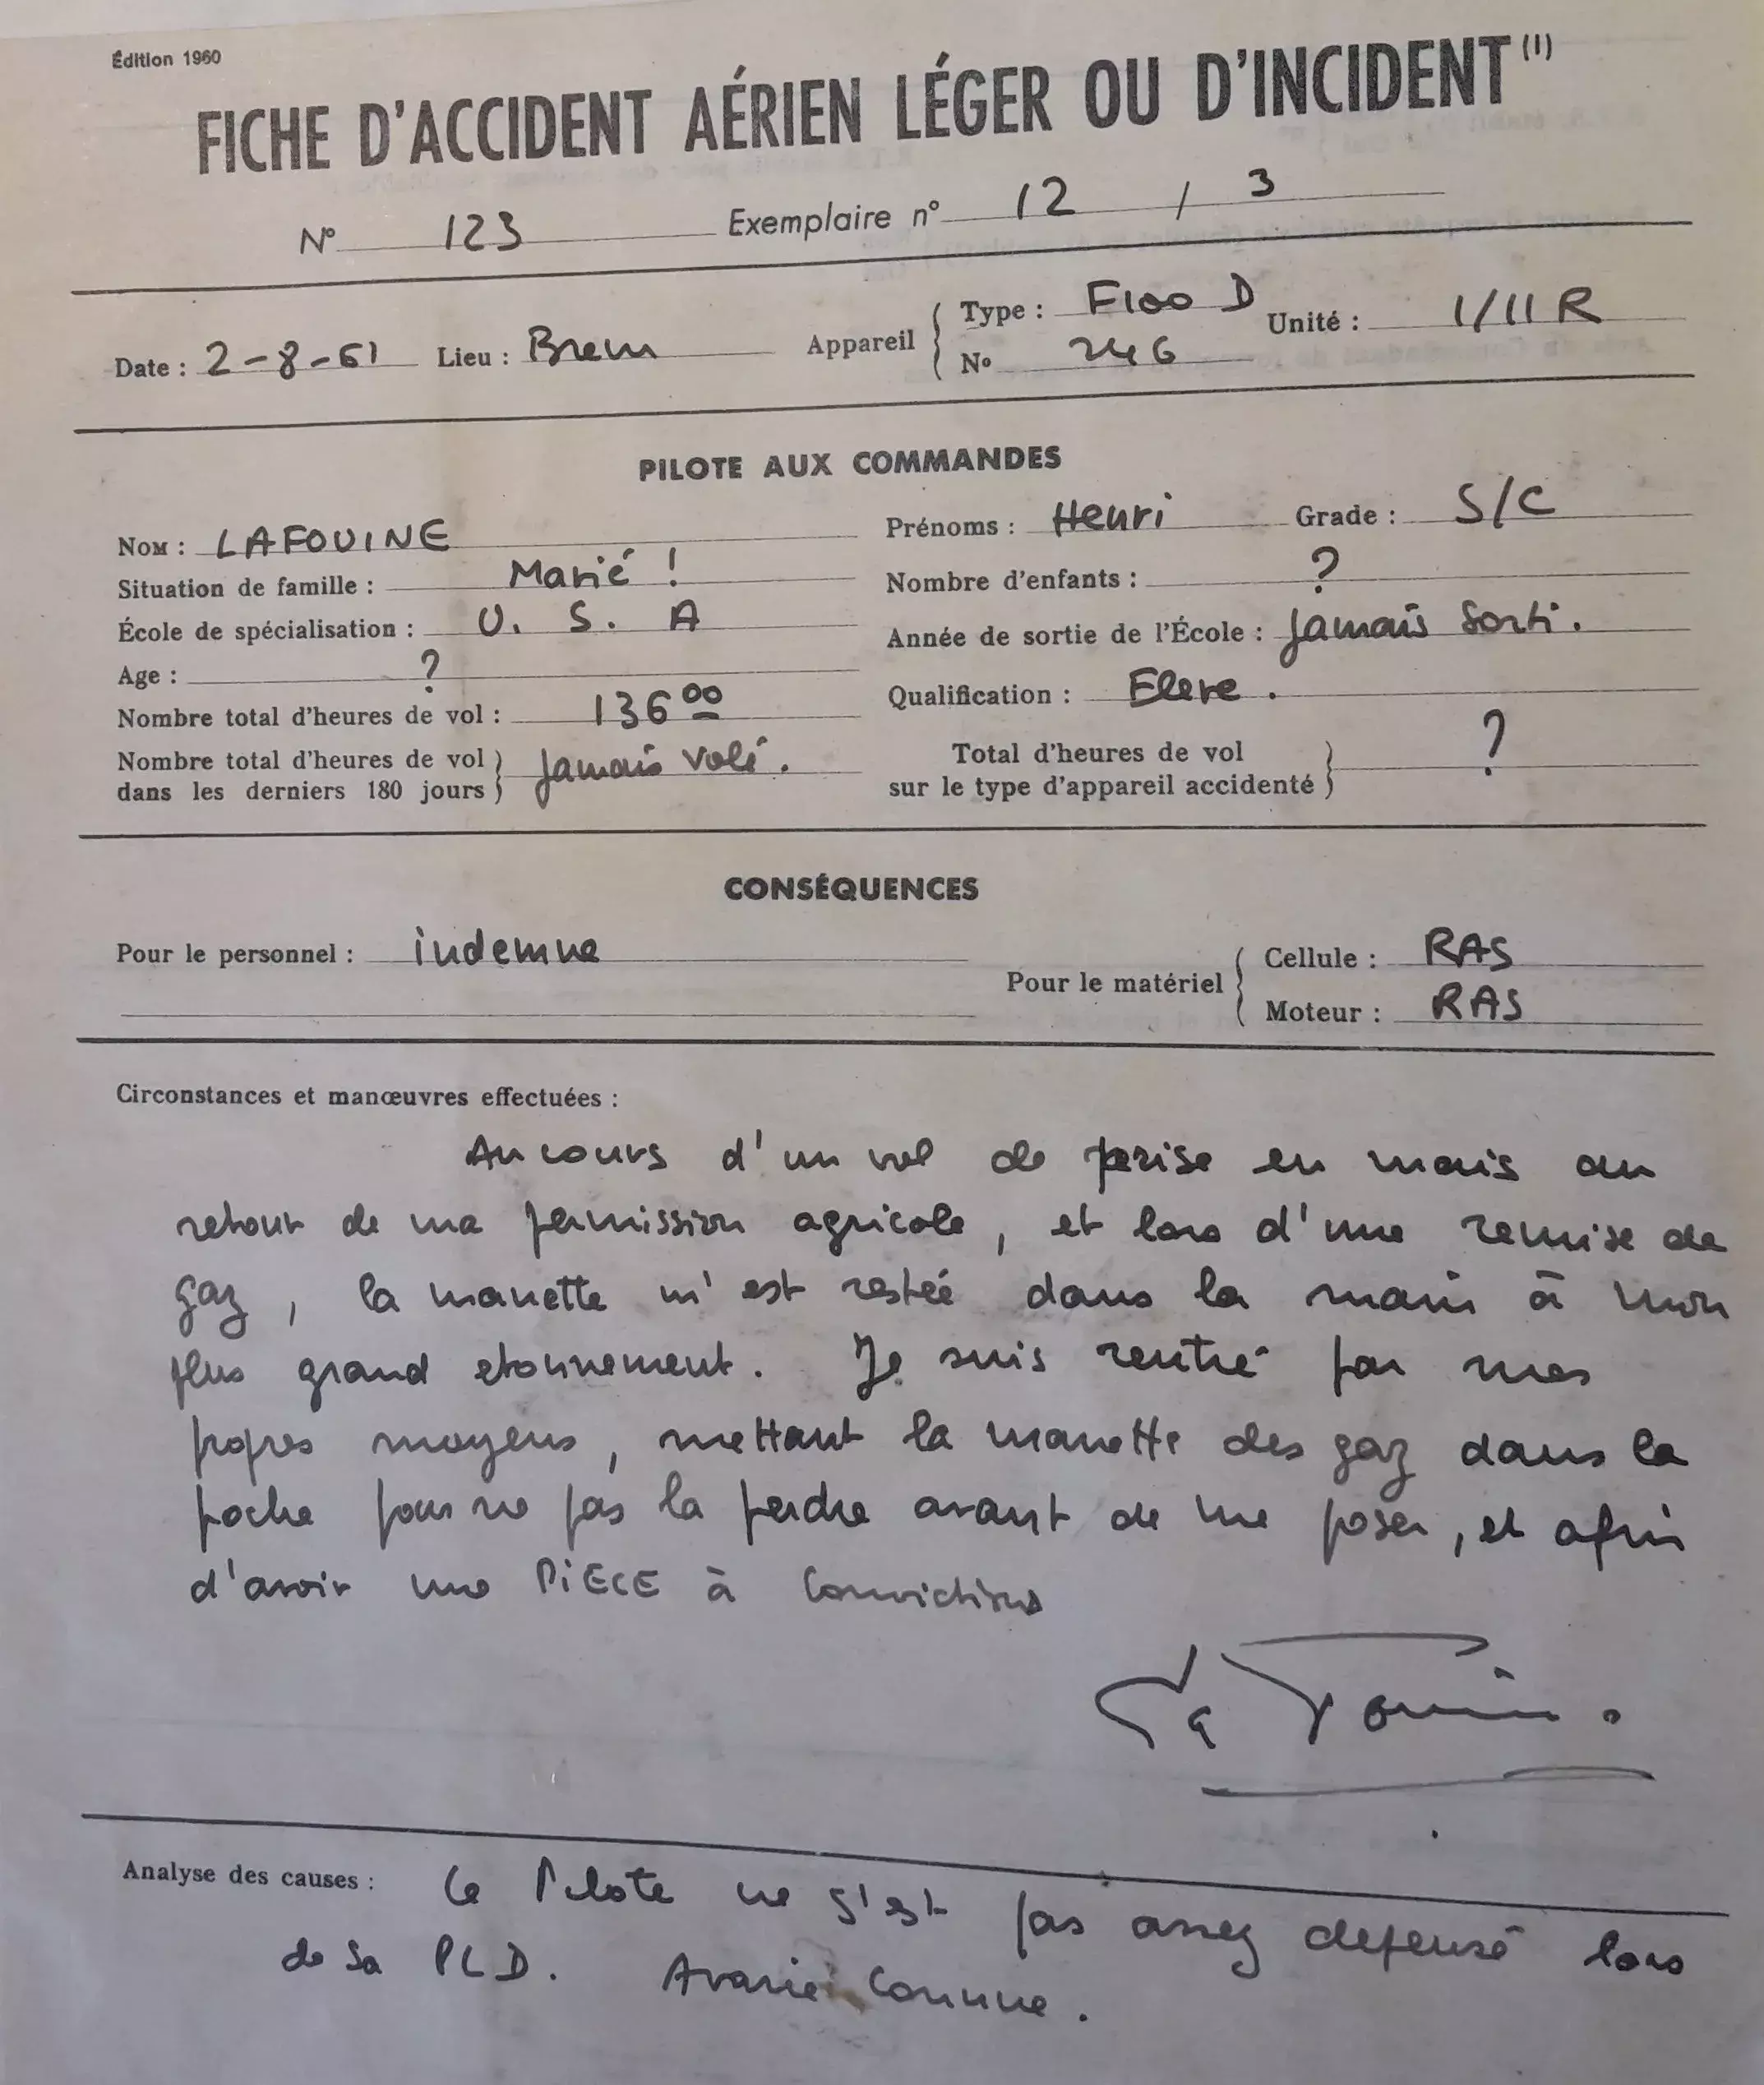 Édition 1960
FICHE D'ACCIDENT AÉRIEN LÉGER OU D'INCIDENT (1)
N° 123 Exemplaire n° 12 / 3
Date : 2-8-61 Lieu : Brem Appareil Type : F100 D Unité : 1/11 R
N° 246
PILOTE AUX COMMANDES
Nom : LAFOUINE Prénoms : Henri Grade : S/C
Situation de famille : Marié ! Nombre d'enfants : ?
École de spécialisation : U. S. A Année de sortie de l'École : Jamais Sorti.
Age : ? Qualification : Eleve.
Nombre total d'heures de vol : 136 00
Nombre total d'heures de vol dans les derniers 180 jours } Jamais volé. Total d'heures de vol sur le type d'appareil accidenté } ?
CONSÉQUENCES
Pour le personnel : indemne Pour le matériel Cellule : RAS
Moteur : RAS
Circonstances et manœuvres effectuées :
Au cours d'un vol de prise en main au
retour de ma permission agricole, et lors d'une remise de
gaz, la manette m'est restée dans la main à mon
plus grand etonnement. Je suis rentré par mes
propres moyens, mettant la manette des gaz dans la
poche pour ne pas la perdre avant de me poser, et afin
d'avoir une PiECE à Convictions
La Fouine.
Analyse des causes : Le Pilote ne s'est pas assez depensé lors
de sa PLD. Avarie Connue.